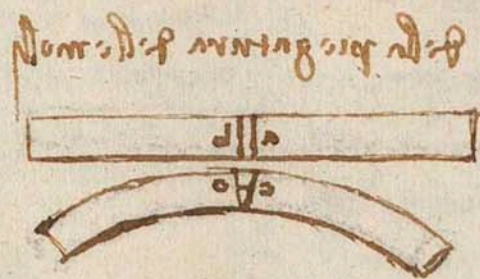 Della piegatura delle molle
a b
c o